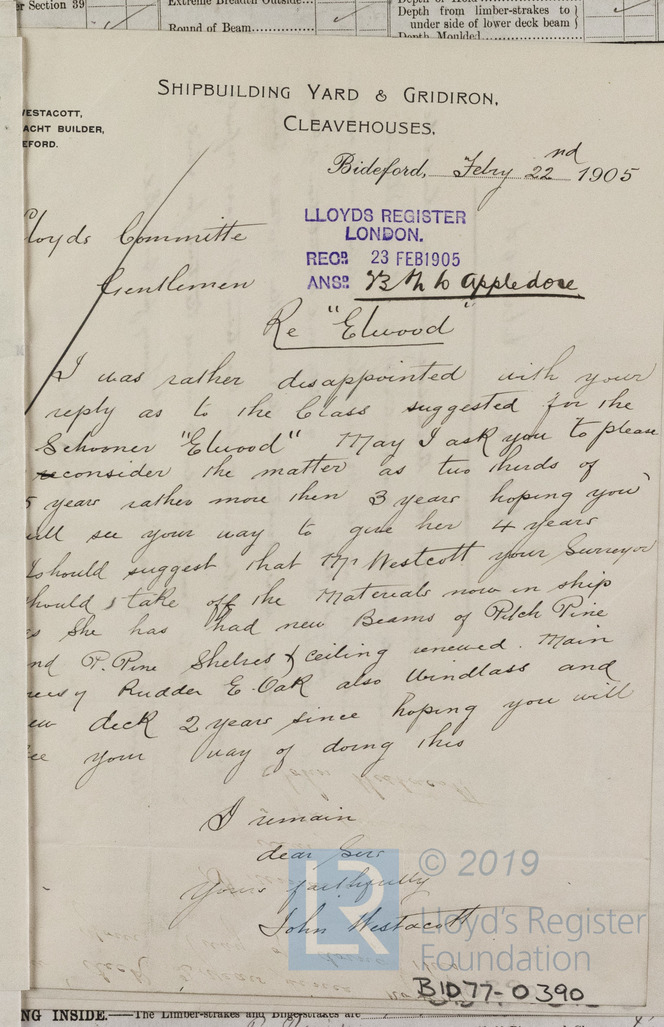 er Section 39
Extreme Breadth Outside...
Round of Beam
Depth from limber-strakes to
under side of lower deck beam
Depth Moulded
SHIPBUILDING YARD & GRIDIRON,
CLEAVEHOUSES,
WESTACOTT,
ACHT BUILDER,
EFORD.
Bideford, Febry 22nd 1905
Lloyds Committe
LLOYDS REGISTER
LONDON.
RECD. 23 FEB 1905
ANSD. 23 to Appledore
Gentlemen
Re "Elwood"
I was rather disappointed with your
reply as to the Class suggested for the
Schooner "Elwood" May I ask you to please
reconsider the matter as two thirds of
5 years rather more then 3 years hoping you
will see your way to give her 4 years
I should suggest that Mr Westcott your Surveyor
should take off the Materials now in ship
as She has had new Beams of Pitch Pine
and P. Pine Shelves & ceiling renewed. Main
Rudder E. Oak also Windlass and
new deck 2 years since hoping you will
see your way of doing this
I remain
dear Sirs
Yours faithfully
John Westacott
LR
© 2019
Lloyd's Register
Foundation
BID77-0390
NG INSIDE.—The Limber-strakes and Bilge-strakes are